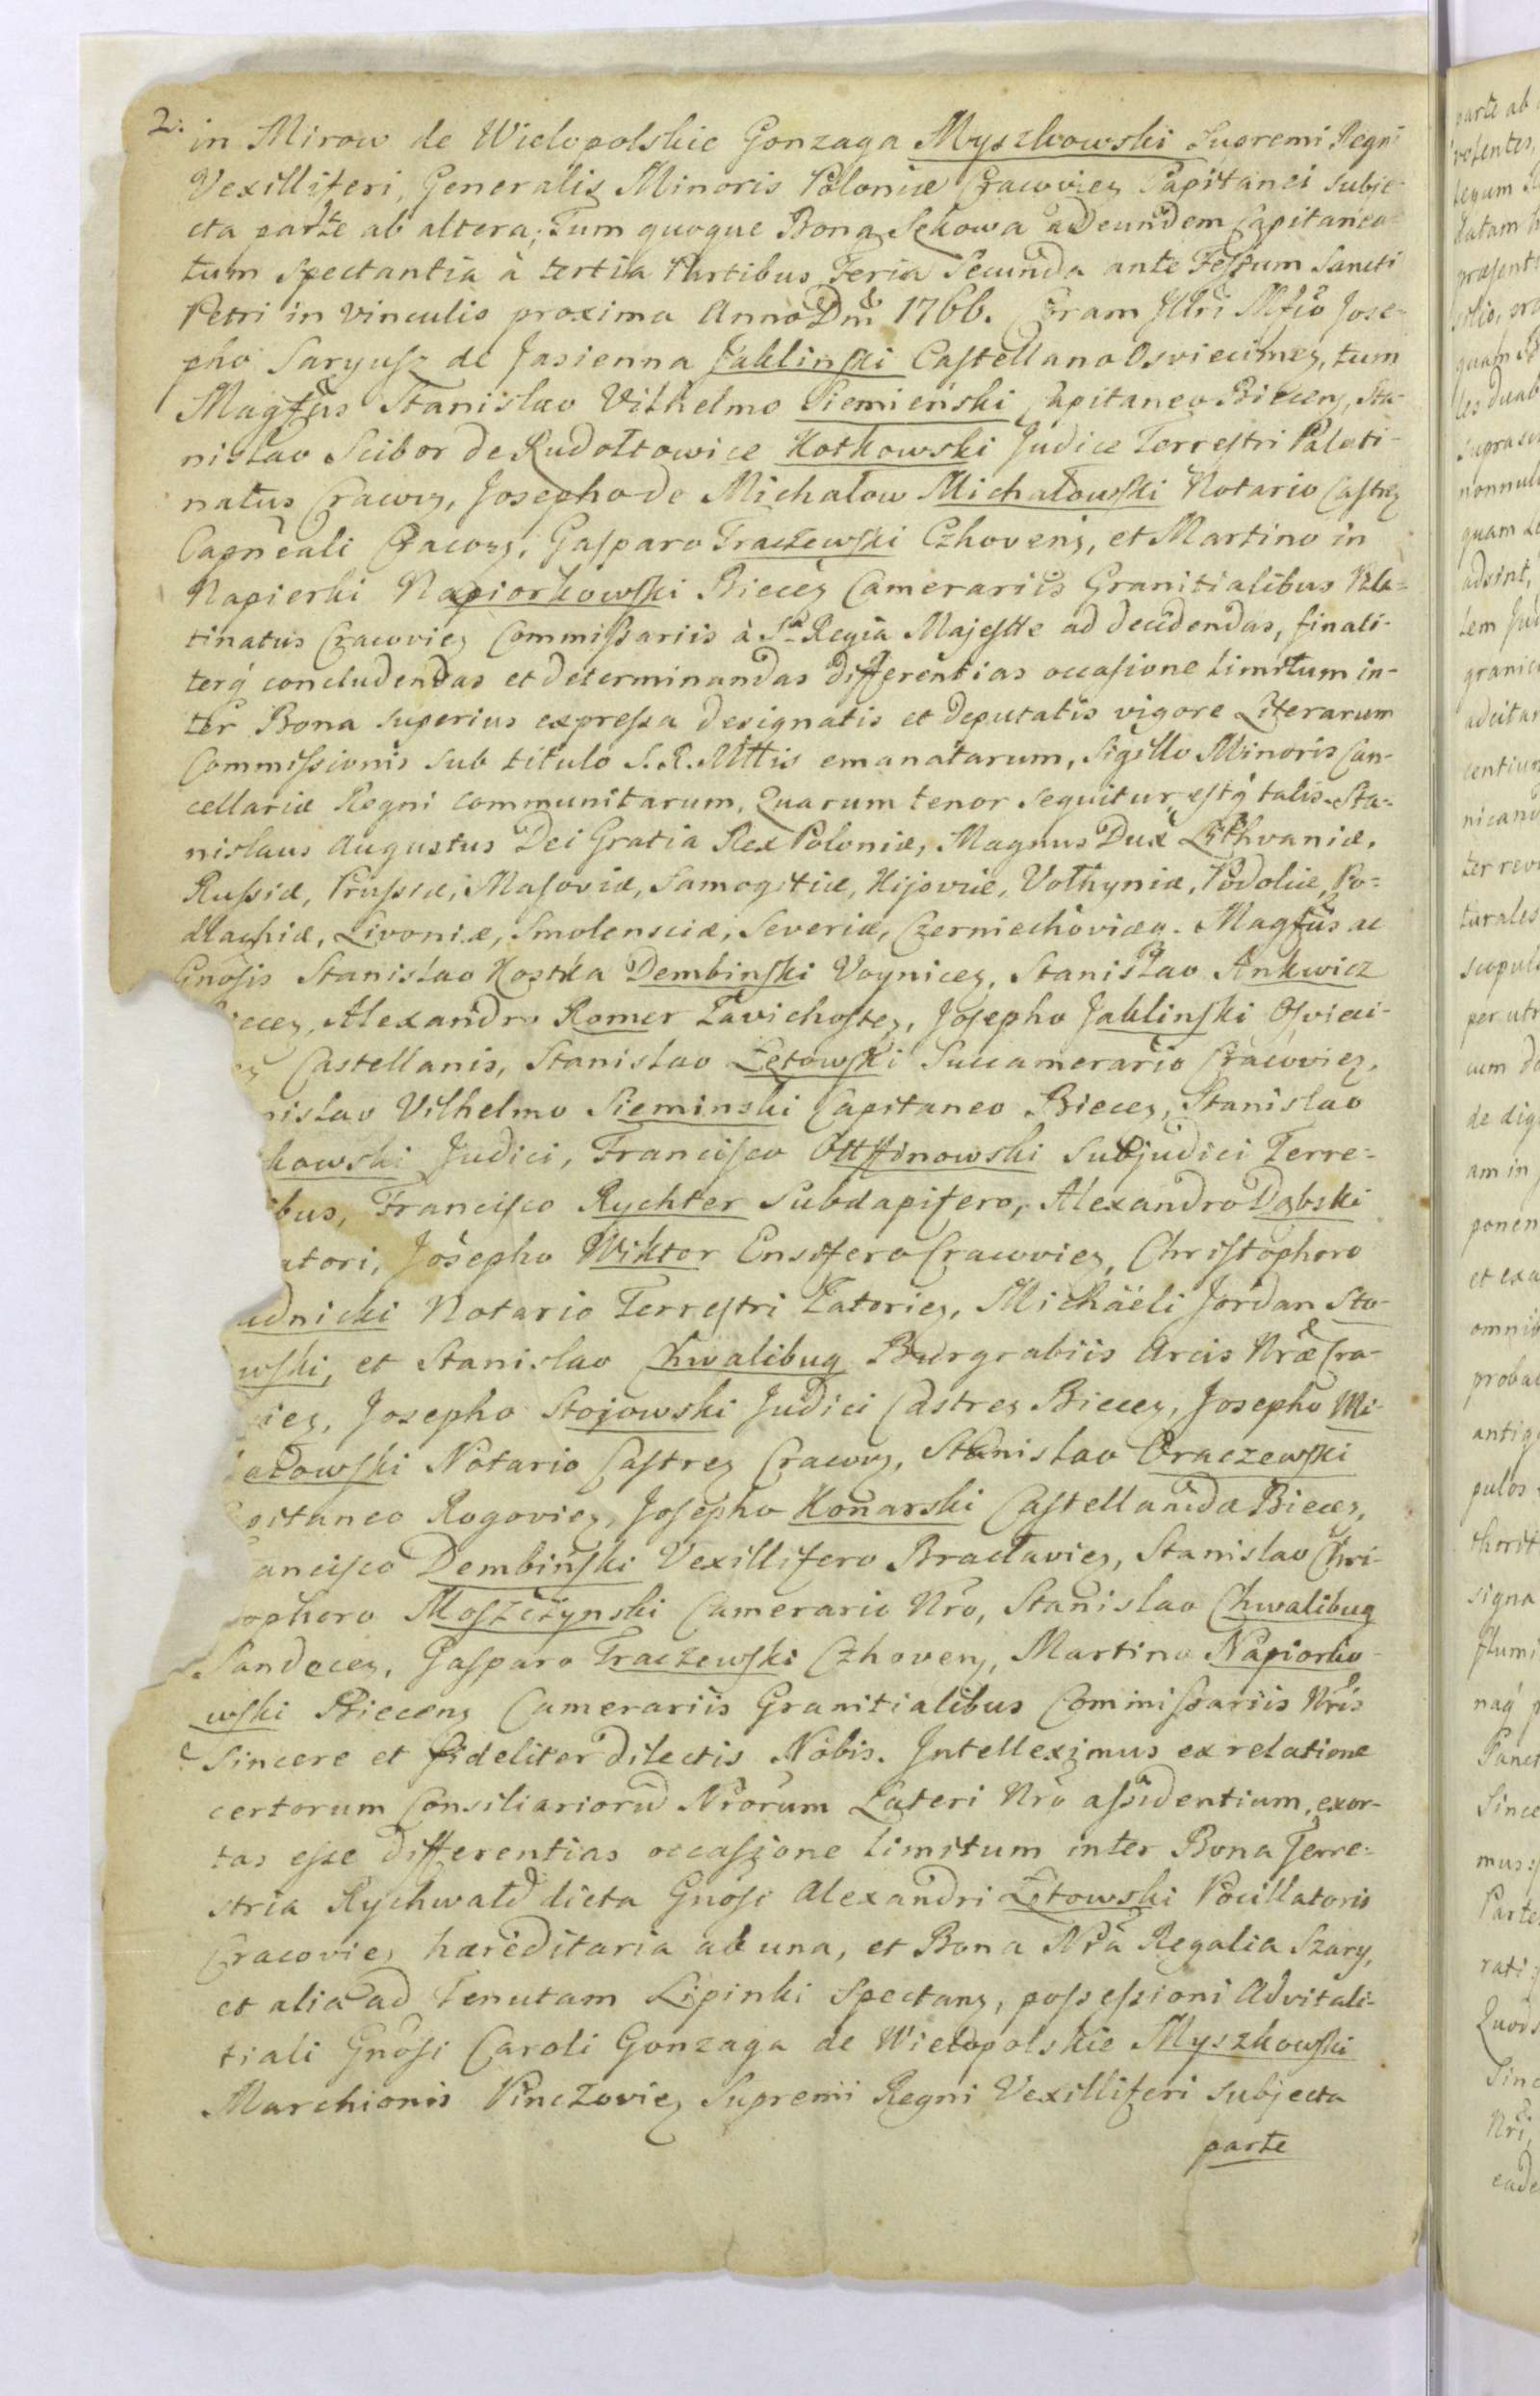 2. in Mirow de Wielopolskie Gonzaga Myszkowski Supremi Regni
Vexilliferi, Generalis Minoris Poloniæ Cracovien Capitanei subje-
cta parte ab altera; Tum quoque Bona Sekowa ad eundem Capitanea-
tum spectantia à tertia Partibus Feria Secunda ante Festum Sancti
Petri in Vinculis proxima Anno Dnī 1766. Coram Illrī Mfīo Jose-
pho Saryusz de Jasienna Jaklinski Castellano Osviecimen, tum
Magfūs Stanislao Vilhelmo Siemieński Capitaneo Biecen, Sta-
nislao Scibor de Rudołtowice Kotkowski Judice Terrestri Palati-
natus Cracov, Josepho de Michałow Michałowski Notario Castren
Capneali Cracov, Gasparo Traczewski Czhoven, et Martino in
Napierki Napiorkowski Biecen Camerariis Granitialibus Pala-
tinatus Cracovien Commissariis à Sa Regia Majestte ad decidendas, finali-
terq concludendas et determinandas differentias occasione limitum in-
ter Bona superius expressa designatis et deputatis vigore Literarum
Commissionis sub titulo S. R. Mttis emanatarum, Sigillo Minoris Can-
cellariæ Regni communitarum, Quarum tenor sequitur, estq talis. Sta-
nislaus Augustus Dei Gratia Rex Poloniæ, Magnus Dux Lithvaniæ,
Russiæ, Prussiæ, Masoviæ, Samogitiæ, Kijoviæ, Vołhyniæ, Podoliæ, Po-
dlachiæ, Livoniæ, Smolensciæ, Severiæ, Czerniechoviæq. Magfūs ac
Gnōsis Stanisłao Kostka Dembinski Voynicen, Stanisłao Ankwicz
iecen, Alexandro Romer Zavichosten, Josepho Jaklinski Osvieci-
en Castellanis, Stanislao Łętowski Succamerario Cracovien,
nislao Vilhelmo Sieminski Capitaneo Biecen, Stanislao
kowski Judici, Francisco Ottfinowski Subjudici Terre-
ibus, Francisco Rychter Subdapifero, Alexandro Dąbski
atori, Josepho Wiktor Ensifero Cracovien, Christophoro
udnicki Notario Terrestri Zatorien, Michaëli Jordan Sto-
wski, et Stanislao Chwalibug Burgrabiis Arcis Nræ Cra-
vien, Josepho Stojowski Judici Castren Biecen, Josepho Mi-
ałowski Notario Castren Cracov, Stanislao Oraczewski
pitaneo Rogovien, Josepho Konarski Castellanidæ Biecen,
ancisco Dembinski Vexillifero Bracłavien, Stanislao Chri-
tophoro Moszczynski Camerario Nro, Stanislao Chwalibug
Sandecen, Gasparo Traczewski Czhoven, Martino Napiorko-
wski Biecens Camerariis Granitialibus Commissariis Nris
Sincere et fideliter dilectis Nobis. Intelleximus ex relatione
certorum Consiliarioru Nrorum Lateri Nro assidentium, exor-
tas esse differentias occasione limitum inter Bona Terre-
stria Rychwałd dicta Gnōsi Alexandri Łętowski Pocillatoris
Cracovien hæreditaria ab una, et Bona Nra Regalia Szary,
et alia ad Tenutam Lipinki spectans, possessioni Advitali-
tiali Gnōsi Caroli Gonzaga de Wielopolskie Myszkowski
Marchionis Pinczovien Supremi Regni Vexilliferi subjecta
parte